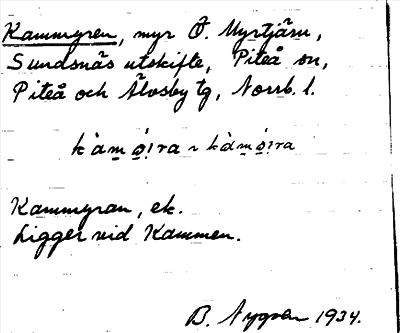 Kammyren, myr Ö. Myrtjärn,
Sundsnäs utskifte, Piteå sn,
Piteå och Älvsby tg, Norrb. l.
kàmọ́ı̣ra ~ kàmọ́ı̣ra
Kammyran, ek.
Ligger vid Kammen.
B. Nygren 1934.